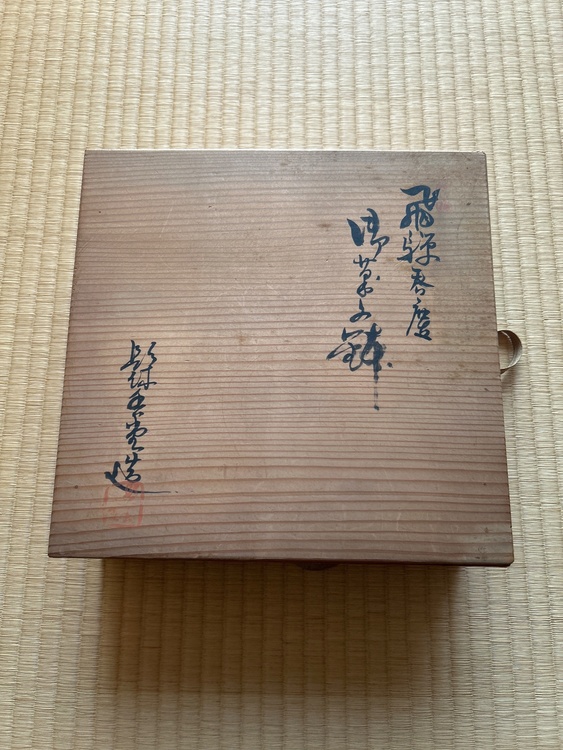 飛騨春慶
御菓子鉢
堂造